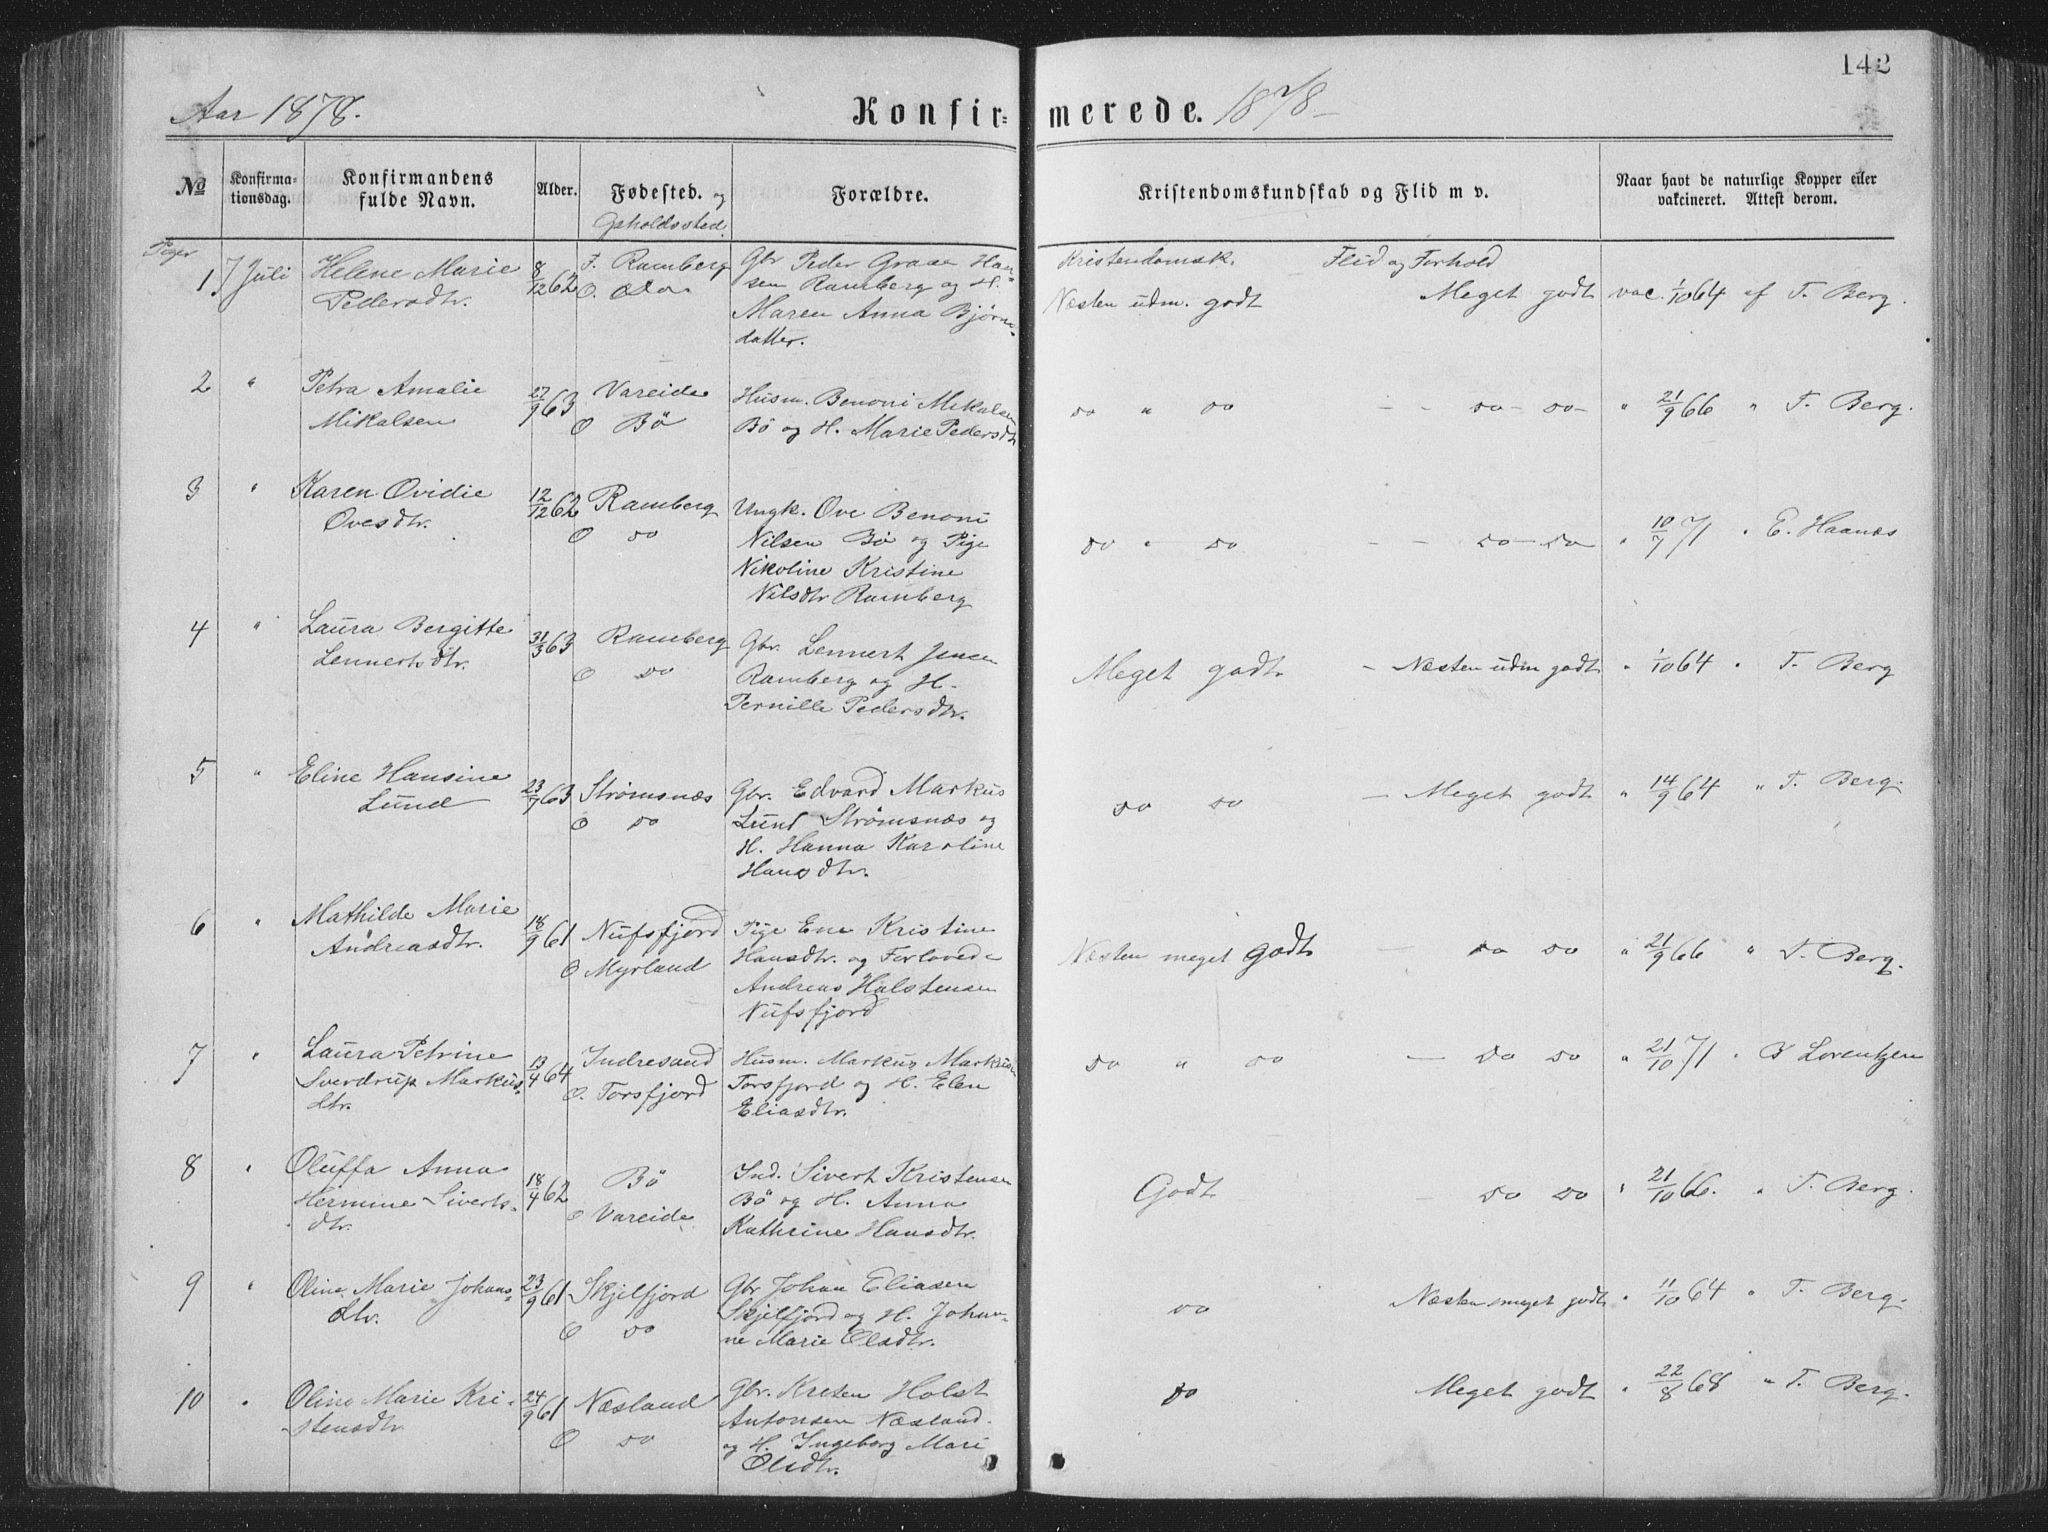 142
Aar 1878. Konfirmerede. 1878
No Konfirmationsdag. Konfirmandens fulde Navn. Alder. Fødested. og Opholdssted. Forældre. Kristendomskundskab og Flid m v. Naar havt de naturlige Kopper eller vakcineret. Attest derom.
Piger
1 7 Juli Helene Marie 8/12 62 F. Ramberg Gbr Peder Graae Han- Kristendomsk. Flid og Forhold
Pedersdtr. O. do sen Ramberg og H. Næsten udm. godt Meget godt vac. 1/10 64 af T. Berg.
Maren Anna Bjørns-
datter.
2 " Petra Amalie 27/9 63 Vareide Husm. Benoni Mikalsen do " do - - do - do - " 21/9 66 " T. Berg.
Mikalsen O Bö Bö og H. Marie Pedersdtr
3 " Karen Ovidie 12/12 62 Ramberg Ungk. Ove Benoni
Ovesdtr. O do Nilsen Bö og Pige do " do - - do - do " 10/7 71 " E. Haanæs
Nikoline Kristine
Nilsdtr Ramberg
4 " Laura Bergitte 31/3 63 Ramberg Gbr. Lennert Jensen
Lennertsdtr. O do Ramberg og H. Meget godt - Næsten udm godt " 1/10 64 " T. Berg
Pernille Pedersdtr.
5 " Eline Hansine 23/7 63 Strømsnæs Gbr. Edvard Markus
Lund O do Lund Strømsnæs og do do - Meget godt " 14/9 64 " T. Berg.
H. Hanna Karoline
Hansdtr.
6 " Mathilde Marie 18/9 61 Nufsfjord Pige Ene Kristine
Andreasdtr. O Myrland Hansdtr. og Forlovede Næsten meget godt - do do " 21/9 66 " T. Berg.
Andreas Halstensen
Nufsfjord
7 " Laura Petrine 13/4 64 Indresand Husm. Markus Markusen
Sverdrup Markus- O. Torsfjord Torsfjord og H. Elen do " do - do do " 21/10 71 " Lorentzen
dtr. Eliasdtr.
8 " Oluffa Anna 18/4 62 Bö Ind. Sivert Kristensen
Hermine Siverts- O Vareide Bö og H. Anna Godt - do do " 21/10 66. " T. Berg.
dtr. Kathrine Hansdtr.
9 " Oline Marie Johans- 23/9 61 Skjelfjord Gbr Johan Eliasen
dtr. O do Skjelfjord og H. Johan- do Næsten meget godt " 11/10 64 " T. Berg.
ne Marie Olsdtr.
10 " Oline Marie Kri- 24/9 61 Næsland Gbr. Kresten Holst
stensdtr O do Antonsen Næsland. do Meget godt " 22/8 68 " T. Berg.
og H. Ingeborg Mari
Olsdtr.